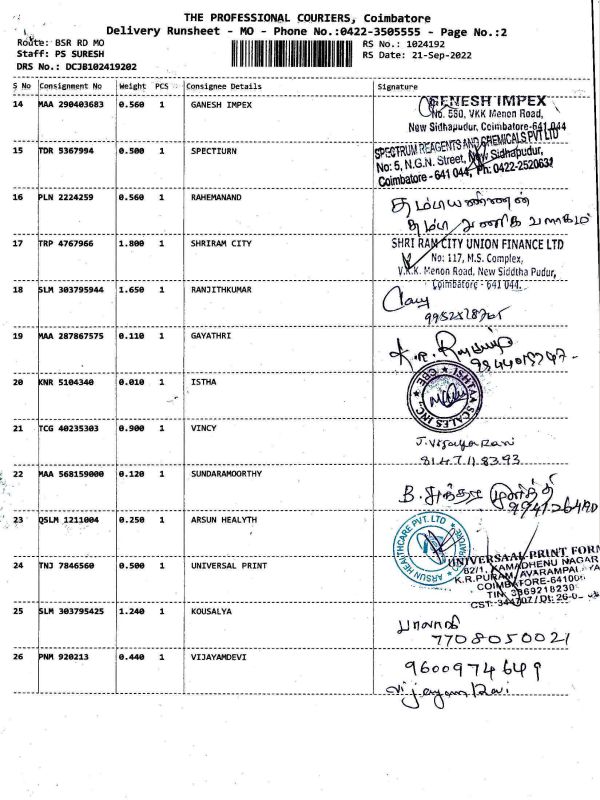 THE PROFESSIONAL COURIERS, Coimbatore
Delivery Runsheet - MO - Phone No.:0422-3505555 - Page No.:2
Route: BSR RD MO
RS No.: 1024192
Staff: PS SURESH
RS Date: 21-Sep-2022
DRS No.: DCJB102419202
S No Consignment No Weight PCS Consignee Details Signature
14 MAA 290403683 0.560 1 GANESH IMPEX
GENESH IMPEX
No. 550, VKK Menon Road,
New Sidhapudur, Coimbatore-641 044
15 TDR 5367994 0.500 1 SPECTIURN
SPECTRUM REAGENTS AND CHEMICALS PVT LTD
No: 5, N.G.N. Street, New Sidhapudur,
Coimbatore - 641 044, Ph: 0422-2520631
16 PLN 2224259 0.560 1 RAHEMANAND
17 TRP 4767966 1.800 1 SHRIRAM CITY
SHRI RAM CITY UNION FINANCE LTD
No: 117, M.S. Complex,
V.K.K. Menon Road, New Siddtha Pudur,
Coimbatore - 641 044.
18 SLM 303795944 1.650 1 RANJITHKUMAR
19 MAA 287867575 0.110 1 GAYATHRI
20 KNR 5104340 0.010 1 ISTHA
ISHTAA SCALES INC. CBE
21 TCG 40235303 0.900 1 VINCY
J. Vijaya Rani
8147118393
22 MAA 568159000 0.120 1 SUNDARAMOORTHY
23 QSLM 1211004 0.250 1 ARSUN HEALYTH
ARSUN HEALTHCARE PVT. LTD
24 TNJ 7846560 0.500 1 UNIVERSAL PRINT
UNIVERSAAL PRINT FORM
82/1, KAMADHENU NAGAR
K.R.PURAM, AVARAMPAL
COIMBATORE-641006
25 SLM 303795425 1.240 1 KOUSALYA
7708050021
26 PNM 920213 0.440 1 VIJAYAMDEVI
9600974649